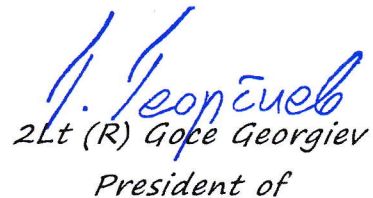 Г. Георгиев
2Lt (R) Goce Georgiev
President of